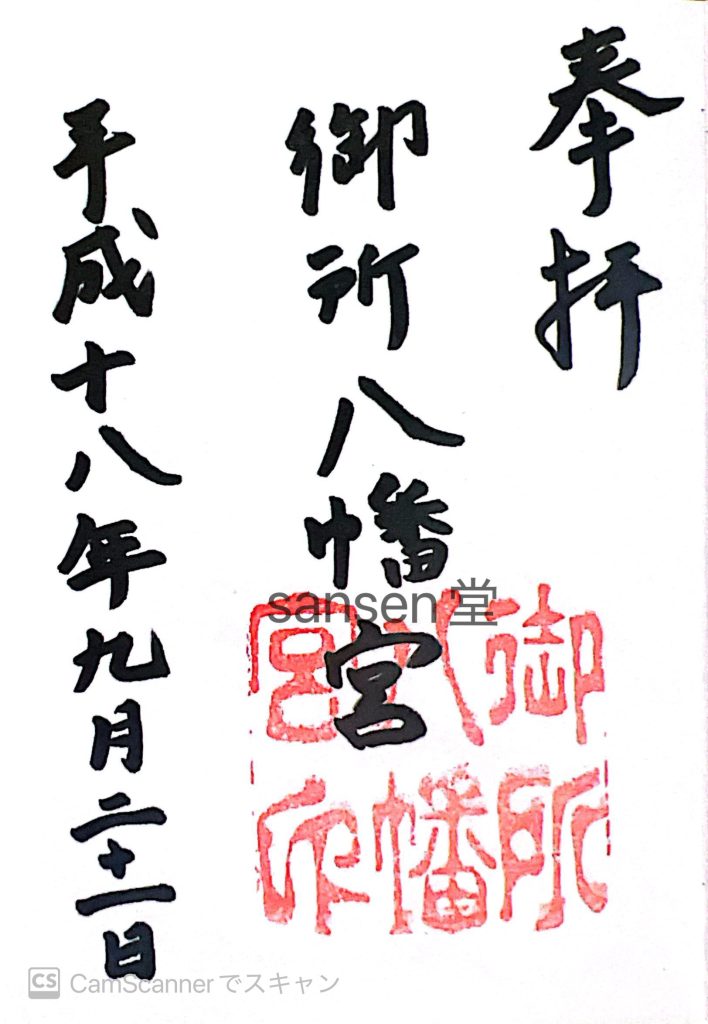 奉拝
御所八幡宮
平成十八年九月二十一日
御所
八幡
宮印
sansen堂
CS CamScannerでスキャン